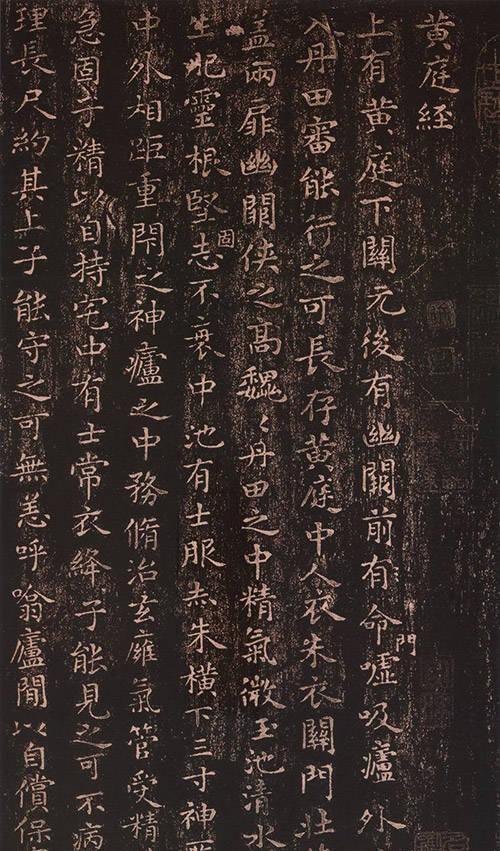 黄庭経
上有黄庭下關元後有幽闕前有命門噓吸廬外
入丹田審能行之可長存黄庭中人衣朱衣關門壯
盖兩扉幽闕俠之高巍〻丹田之中精氣微玉池清水
生肥靈根堅固志不衰中池有士服赤朱橫下三寸神所
中外相距重閇之神廬之中務脩治玄廱氣管受精
急固子精以自持宅中有士常衣絳子能見之可不病
理長尺約其上子能守之可無恙呼噏廬閒以自償保